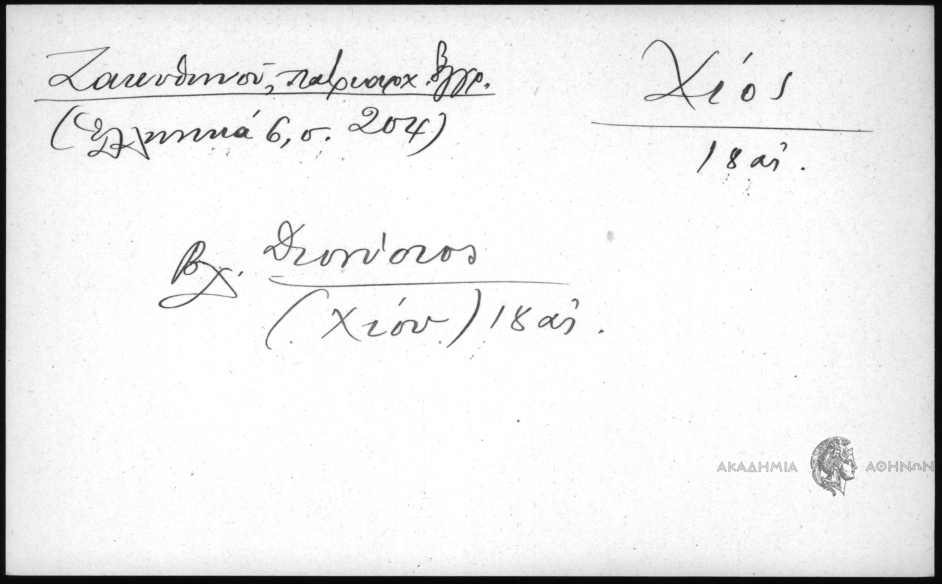 Ζακυθηνοῦ, πατριαρχ. ἔγγρ.
(Ἑλληνικά 6, σ. 204)
Χίος
18 αἰ.
Βχ. Διονύσιος
(Χίου) 18 αἰ.
ΑΚΑΔΗΜΙΑ ΑΘΗΝΩΝ